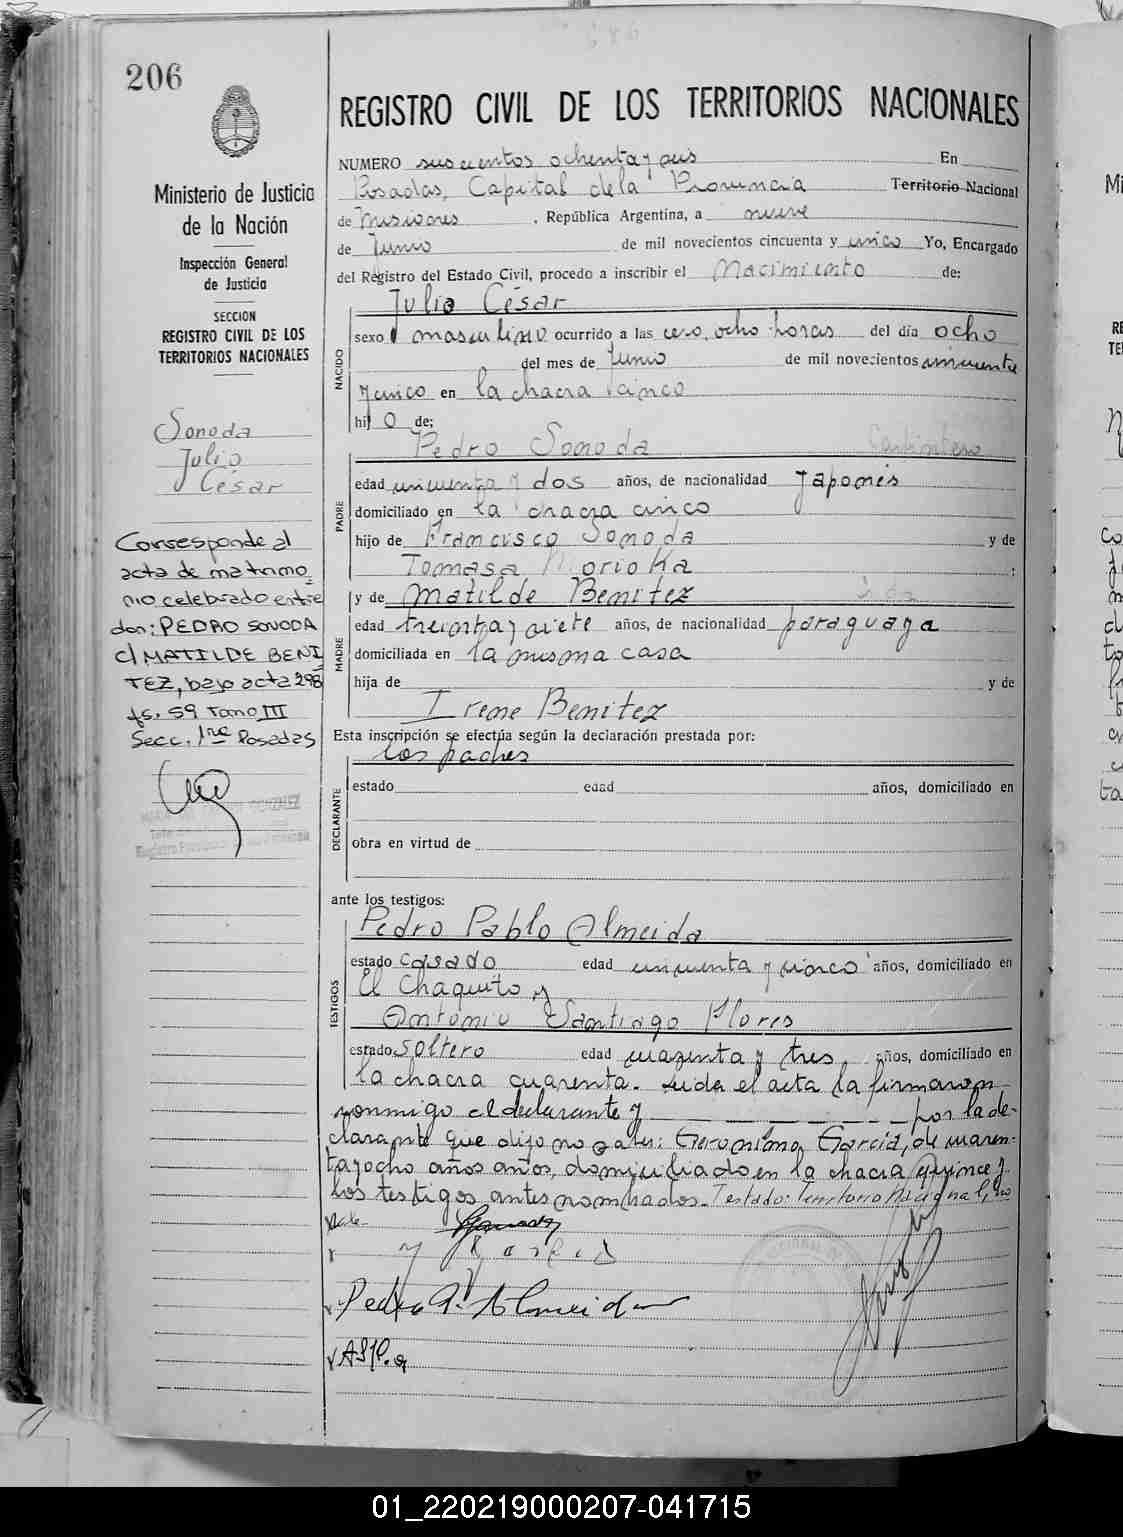 206
REGISTRO CIVIL DE LOS TERRITORIOS NACIONALES
Ministerio de Justicia
de la Nación
Inspección General
de Justicia
SECCION
REGISTRO CIVIL DE LOS
TERRITORIOS NACIONALES
Sonoda
Julio
César
Corresponde al
acta de matrimo
nio celebrado entre
don: PEDRO SONODA
c/ MATILDE BENI
TEZ, bajo acta 298
fs. 59 Tomo III
Secc. 1ra Posadas
NUMERO seiscientos ochenta y seis En
Posadas, Capital de la Provincia Territorio Nacional
de Misiones, República Argentina, a nueve
de Junio de mil novecientos cincuenta y único Yo, Encargado
del Registro del Estado Civil, procedo a inscribir el Nacimiento de:
Julio César
NACIDO
sexo masculino ocurrido a las cero, ocho horas del día ocho
del mes de Junio de mil novecientos cincuenta
y cinco en la chacra cinco
hijo de:
Pedro Sonoda
PADRE
edad cincuenta y dos años, de nacionalidad Japonés
domiciliado en la chacra cinco
hijo de Francisco Sonoda y de
Tomasa Morioka
y de Matilde Benitez
MADRE
edad treinta y siete años, de nacionalidad paraguaya
domiciliada en la misma casa
hija de y de
Irene Benitez
Esta inscripción se efectúa según la declaración prestada por:
los padres
DECLARANTE
estado edad años, domiciliado en
obra en virtud de
ante los testigos:
Pedro Pablo Almeida
TESTIGOS
estado casado edad cincuenta y cinco años, domiciliado en
El Chaquito, y
Antonio Santiago Flores
estado soltero edad cuarenta y tres, años, domiciliado en
la chacra cuarenta. Leida el acta la firmaron
conmigo el declarante y por la de-
clarante que dijo no saber: Geronimo Garcia, de cuaren-
ta y ocho años años, domiciliado en la chacra quince y
los testigos antes nombrados. Testado: Territorio Nacional, no
Vale.
Pedro P. Almeida
01_220219000207-041715